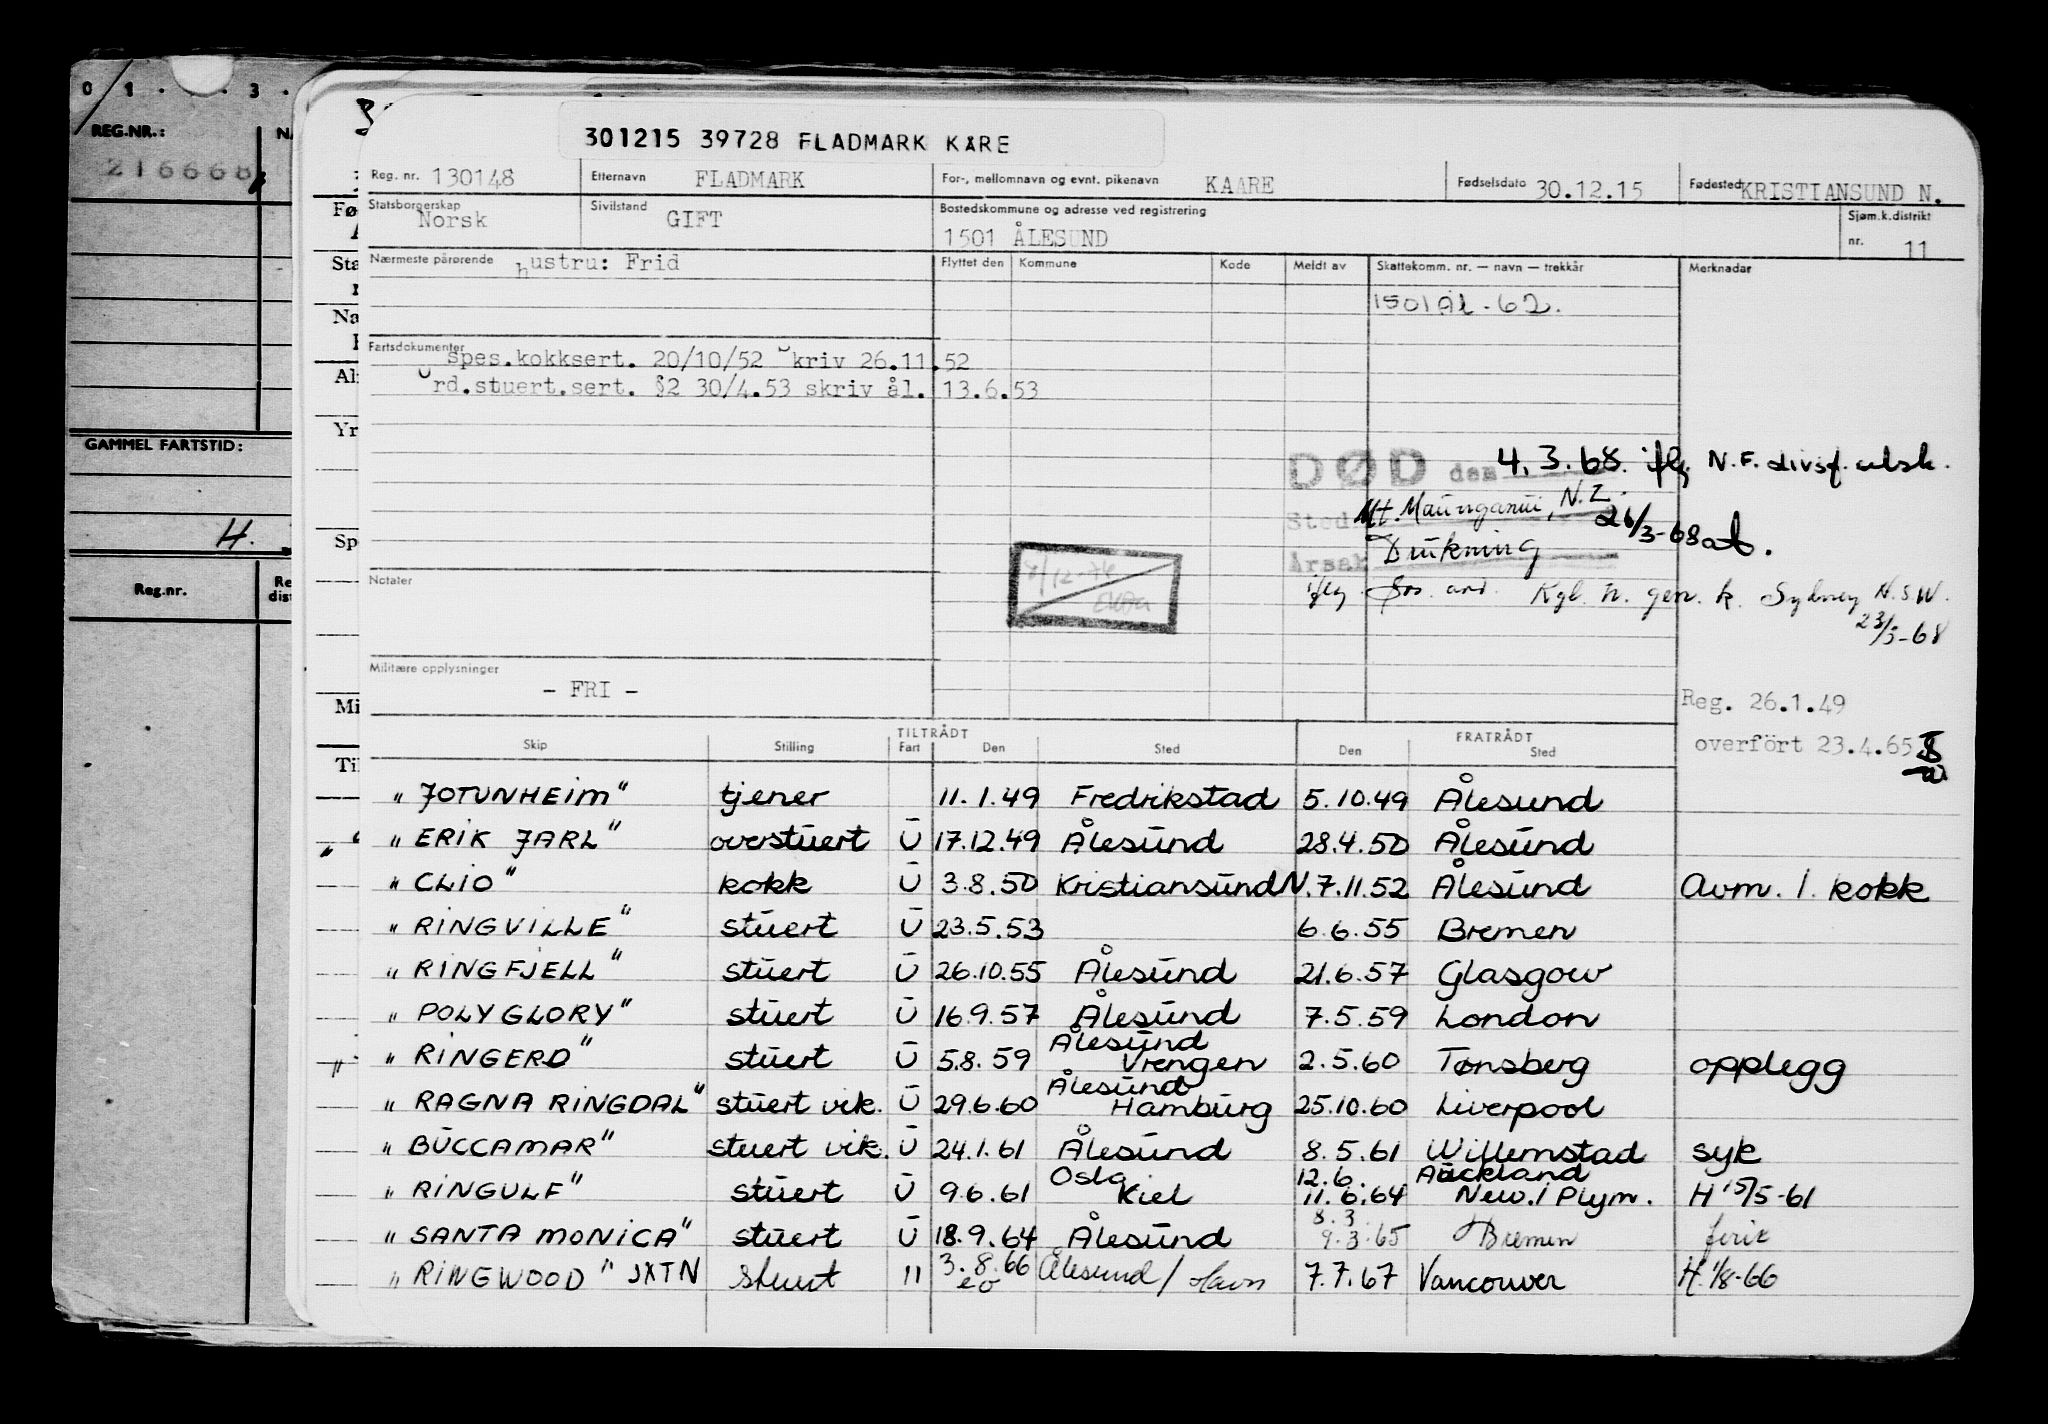 0 1 . . . 3 .
REG.NR.:
216668
GAMMEL FARTSTID:
H.
Reg.nr.
301215 39728 FLADMARK KÅRE
Reg. nr. 130148 Etternavn FLADMARK For-, mellomnavn og evnt. pikenavn KAARE Fødselsdato 30.12.15 Fødested KRISTIANSUND N.
Statsborgerskap Norsk Sivilstand GIFT Bostedskommune og adresse ved registrering 1501 ÅLESUND Sjøm.k.distrikt nr. 11
Nærmeste pårørende hustru: Frid Flyttet den Kommune Kode Meldt av Skattekomm. nr. — navn — trekkår Merknader
1501 Ål - 62.
Fartsdokumenter spes.kokksert. 20/10/52 kriv 26.11.52
rd.stuert.sert. §2 30/4.53 skriv ål. 13.6.53
DØD den 4.3.68. iflg. N.F. utsk.
Sted Mt. Maunganui, N.Z. 26/3-68
Årsak Drukning
iflg. Kgl. n. gen. k. Sydney N.S.W.
23/3-68
Notater
Militære opplysninger
- FRI -
Reg. 26.1.49
overført 23.4.65
TILTRÅDT FRATRÅDT
Skip Stilling Fart Den Sted Den Sted
"JOTUNHEIM" tjener 11.1.49 Fredrikstad 5.10.49 Ålesund
"ERIK JARL" overstuert U 17.12.49 Ålesund 28.4.50 Ålesund
"CLIO" kokk U 3.8.50 Kristiansund N. 7.11.52 Ålesund Avm. 1. kokk
"RINGVILLE" stuert U 23.5.53 6.6.55 Bremen
"RINGFJELL" stuert U 26.10.55 Ålesund 21.6.57 Glasgow
"POLYGLORY" stuert U 16.9.57 Ålesund 7.5.59 London
"RINGERD" stuert U 5.8.59 Ålesund Vrengen 2.5.60 Tønsberg opplegg
"RAGNA RINGDAL" stuert vik. U 29.6.60 Ålesund Hamburg 25.10.60 Liverpool
"BUCCAMAR" stuert vik. U 24.1.61 Ålesund 8.5.61 Willemstad syk
"RINGULF" stuert U 9.6.61 Oslo Kiel 12.6. 11.6.64 Auckland New. / Plym. H 15/5-61
"SANTA MONICA" stuert U 18.9.64 Ålesund 8.3. 9.3.65 Bremen ferie
"RINGWOOD" JXTN stuert 11 3.8.66 Ålesund / Havn 7.7.67 Vancouver H. 1/8-66